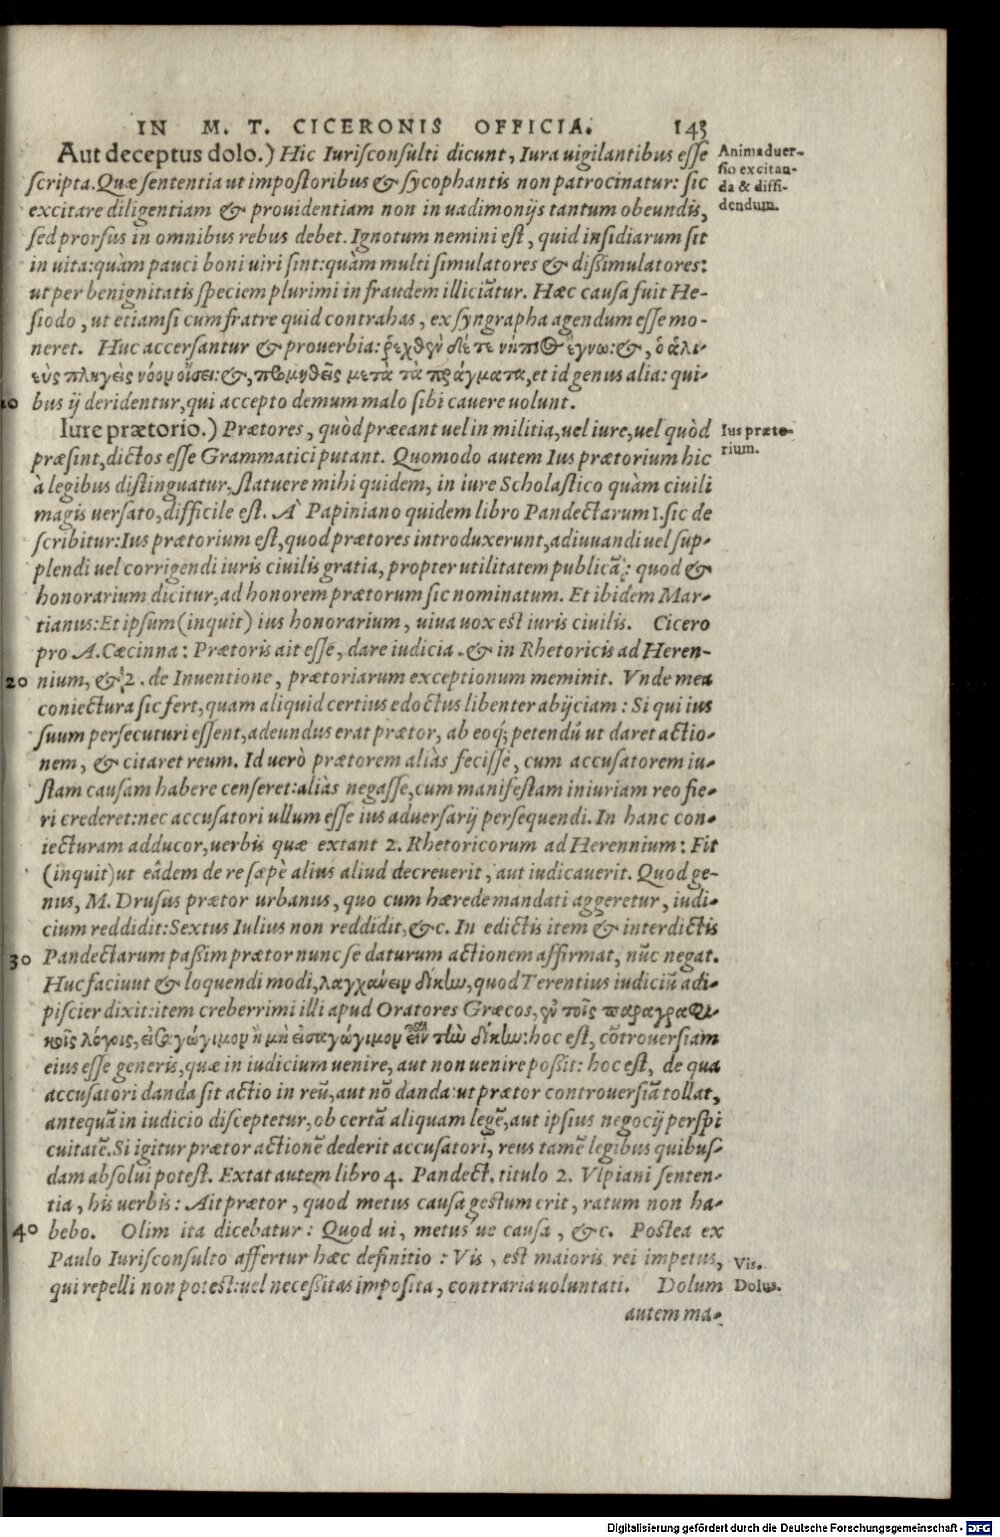 IN M. T. CICERONIS OFFICIA. 143
Aut deceptus dolo.) Hic Iurisconsulti dicunt, Iura uigilantibus esse
scripta. Quæ sententia ut impostoribus & sycophantis non patrocinatur: sic
excitare diligentiam & prouidentiam non in uadimonijs tantum obeundis,
sed prorsus in omnibus rebus debet. Ignotum nemini est, quid insidiarum sit
in uita: quàm pauci boni uiri sint: quàm multi simulatores & dißimulatores:
ut per benignitatis speciem plurimi in fraudem illiciātur. Hæc causa fuit He-
siodo, ut etiamsi cum fratre quid contrahas, ex syngrapha agendum esse mo-
neret. Huc accersantur & prouerbia: ῥεχθὲν δέ τε νήπι@ ἔγνω: &, ὁ ἁλι-
εὺς πληγεὶς νόον οἴσει: &, προμηθεῖς μετὰ τὰ πράγματα, et id genus alia: qui-
10 bus ij deridentur, qui accepto demum malo sibi cauere uolunt.
Iure prætorio.) Prætores, quòd præeant uel in militia, uel iure, uel quòd
præsint, dictos esse Grammatici putant. Quomodo autem Ius prætorium hic
à legibus distinguatur, statuere mihi quidem, in iure Scholastico quàm ciuili
magis uersato, difficile est. À Papiniano quidem libro Pandectarum 1. sic de
scribitur: Ius prætorium est, quod prætores introduxerunt, adiuuandi uel sup-
plendi uel corrigendi iuris ciuilis gratia, propter utilitatem publicā: quod &
honorarium dicitur, ad honorem prætorum sic nominatum. Et ibidem Mar-
tianus: Et ipsum (inquit) ius honorarium, uiua uox est iuris ciuilis. Cicero
pro A. Cæcinna: Prætoris ait esse, dare iudicia. & in Rhetoricis ad Heren-
20 nium, & 2. de Inuentione, prætoriarum exceptionum meminit. Vnde mea
coniectura sic fert, quam aliquid certius edoctus libenter abijciam: Si qui ius
suum persecuturi essent, adeundus erat prætor, ab eoq́; petendū ut daret actio-
nem, & citaret reum. Id uerò prætorem aliàs fecisse, cum accusatorem iu-
stam causam habere censeret: aliàs negasse, cum manifestam iniuriam reo fie-
ri crederet: nec accusatori ullum esse ius aduersarij persequendi. In hanc con-
iecturam adducor, uerbis quæ extant 2. Rhetoricorum ad Herennium: Fit
(inquit) ut eâdem de re sæpè alius aliud decreuerit, aut iudicauerit. Quod ge-
nus, M. Drusus prætor urbanus, quo cum hærede mandati aggeretur, iudi-
cium reddidit: Sextus Iulius non reddidit, &c. In edictis item & interdictis
30 Pandectarum paßim prætor nunc se daturum actionem affirmat, nūc negat.
Huc faciuut & loquendi modi, λαγχάνειν δίκλω, quod Terentius iudiciū adi-
piscier dixit: item creberrimi illi apud Oratores Græcos, ἐν τοῖς παραγραφι-
κοῖς λόγοις, εἰσαγώγιμον ἢ μὴ εἰσαγώγιμον εἶναι τλὼ δίκλω: hoc est, cōtrouersiam
eius esse generis, quæ in iudicium uenire, aut non uenire poßit: hoc est, de qua
accusatori danda sit actio in reū, aut nō danda: ut prætor controuersiā tollat,
antequā in iudicio disceptetur, ob certā aliquam legē, aut ipsius negocij perspi
cuitatē. Si igitur prætor actionē dederit accusatori, reus tamē legibus quibus-
dam absolui potest. Extat autem libro 4. Pandect. titulo 2. Vlpiani senten-
tia, his uerbis: Ait prætor, quod metus causa gestum erit, ratum non ha-
40 bebo. Olim ita dicebatur: Quod ui, metus ue causa, &c. Postea ex
Paulo Iurisconsulto affertur hæc definitio: Vis, est maioris rei impetus,
qui repelli non potest: uel neceßitas imposita, contraria uoluntati. Dolum
autem ma-
Animaduer-
sio excitan-
da & diffi-
dendum.
Ius præto-
rium.
Vis.
Dolus.
Digitalisierung gefördert durch die Deutsche Forschungsgemeinschaft - DFG